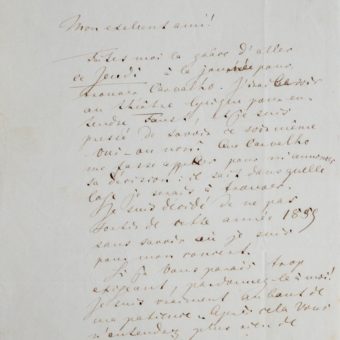 Mon exelent ami!
Faites moi la grâce d'aller
ce Jeudi à la journée pour
trouver Carvalho. J'irai ce soir
au théâtre lyrique pour en-
tendre Faust, et je suis
pressé de savoir ce soir même
oui – ou non! Que Carvalho
me fasse appeler pour m'annoncer
sa décision: il sait dans quelle
loge je serais à trouver.
Je suis décidé de ne pas
sortir de cette année 1859
sans savoir où je suis
pour mon concert.
Si je vous parais trop
exigeant, pardonnez-le moi!
Je suis vraiment au bout de
ma patience. Après cela vous
n'entendez plus rien de